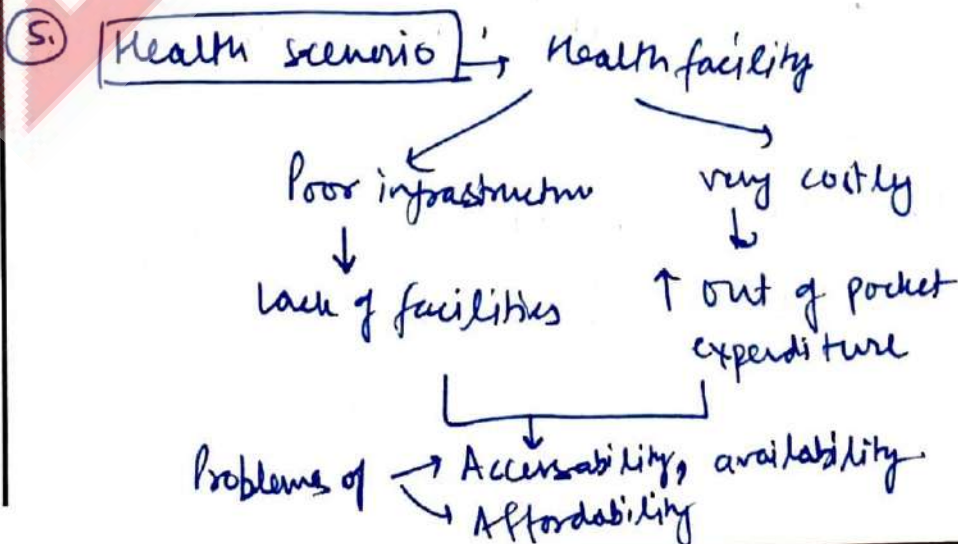 5. Health scenerio → Health facility
Poor infrastructure very costly
↓ ↓
Lack of facilities ↑ out of pocket
expenditure
Problems of → Accessability, availability
→ Affordability